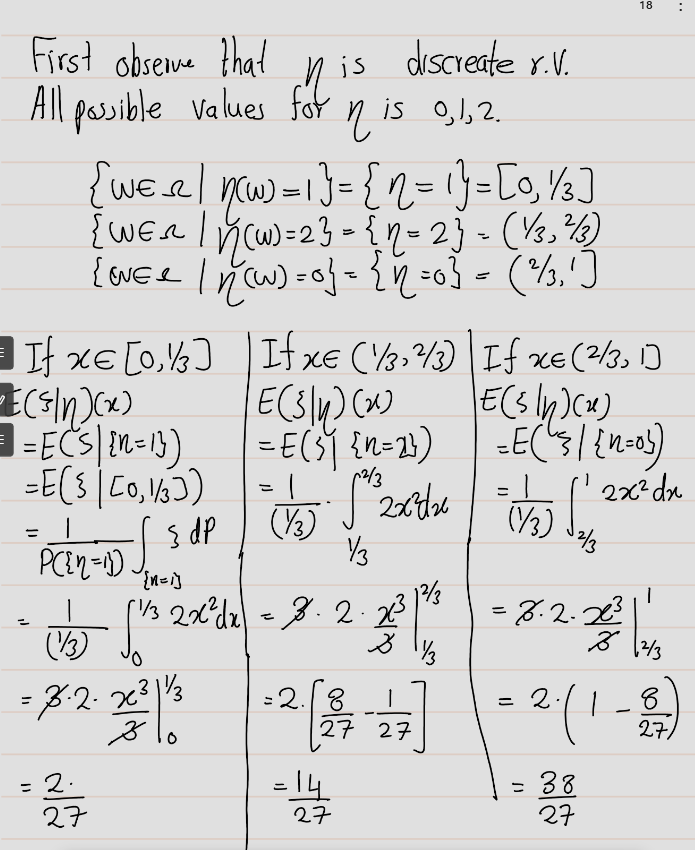 18 :
First observe that η is discreate r.v.
All possible values for η is 0,1,2.
{w∈Ω | η(w)=1} = {η=1} = [0, 1/3]
{w∈Ω | η(w)=2} = {η=2} = (1/3, 2/3)
{w∈Ω | η(w)=0} = {η=0} = (2/3, 1]
If x∈[0, 1/3]
E(ξ|η)(x)
=E(ξ|{η=1})
=E(ξ|[0,1/3])
= 1/P({η=1}) ∫_{η=1} ξ dP
= 1/(1/3) ∫_0^{1/3} 2x²dx
= 3·2· x³/3 |_0^{1/3}
= 2·/27
If x∈(1/3, 2/3)
E(ξ|η)(x)
=E(ξ|{η=2})
= 1/(1/3) · ∫_{1/3}^{2/3} 2x²dx
= 3·2· x³/3 |_{1/3}^{2/3}
=2·[8/27 - 1/27]
= 14/27
If x∈(2/3, 1]
E(ξ|η)(x)
=E(ξ|{η=0})
= 1/(1/3) ∫_{2/3}^1 2x² dx
= 3·2· x³/3 |_{2/3}^1
= 2·(1 - 8/27)
= 38/27